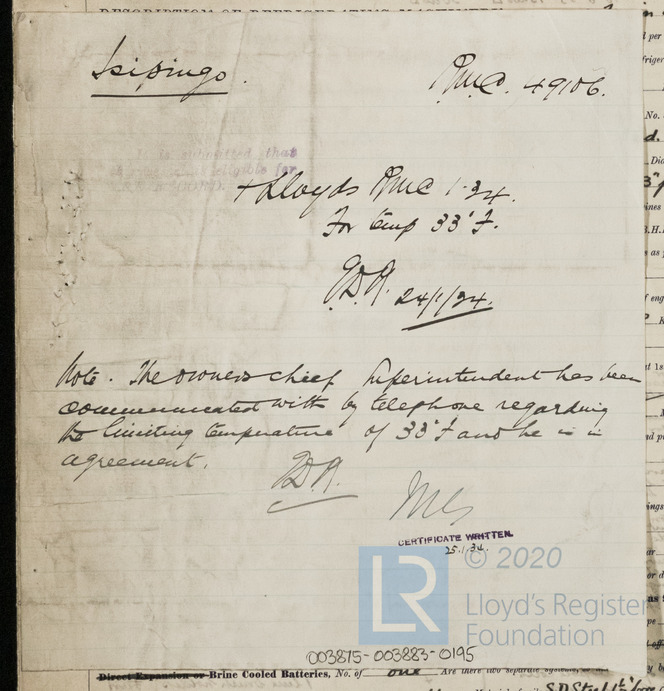 Isipingo.
RMC. 49106.
It is submitted that
eligible for
+ Lloyds RMC 1.34.
For temp 33°F.
24/1/34.
Note. The owners chief Superintendent has been
communicated with by telephone regarding
the limiting temperature of 33°F and he is in
agreement.
CERTIFICATE WRITTEN.
25.1.34.
© 2020
LR
Lloyd's Register
Foundation
003875-003883-0195
Direct Expansion or Brine Cooled Batteries, No. of one Are there two separate